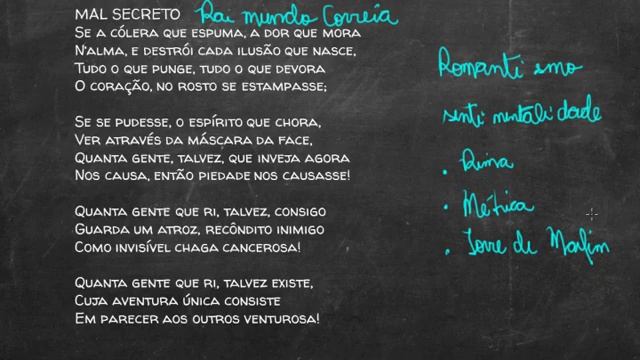 MAL SECRETO Raimundo Correia
SE A CÓLERA QUE ESPUMA, A DOR QUE MORA
N'ALMA, E DESTRÓI CADA ILUSÃO QUE NASCE,
TUDO O QUE PUNGE, TUDO O QUE DEVORA
O CORAÇÃO, NO ROSTO SE ESTAMPASSE;
SE SE PUDESSE, O ESPÍRITO QUE CHORA,
VER ATRAVÉS DA MÁSCARA DA FACE,
QUANTA GENTE, TALVEZ, QUE INVEJA AGORA
NOS CAUSA, ENTÃO PIEDADE NOS CAUSASSE!
QUANTA GENTE QUE RI, TALVEZ, CONSIGO
GUARDA UM ATROZ, RECÔNDITO INIMIGO
COMO INVISÍVEL CHAGA CANCEROSA!
QUANTA GENTE QUE RI, TALVEZ EXISTE,
CUJA AVENTURA ÚNICA CONSISTE
EM PARECER AOS OUTROS VENTUROSA!
Romantismo
sentimentalidade
• Rima
• Métrica
• Torre de Marfim